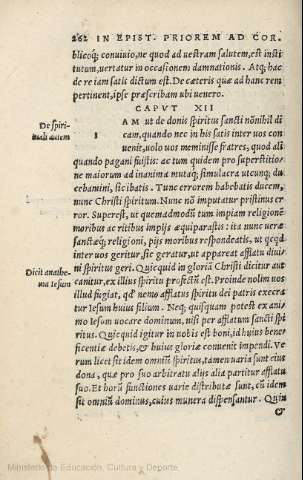 262 IN EPIST. PRIOREM AD COR.
blicoq; conuiuio, ne quod ad uestram salutem, est insti
tutum, uertatur in occasionem damnationis. Atq; hac
de re iam satis dictum est. De cæteris quæ ad hanc rem
pertinent, ipse præscribam ubi uenero.
CAPVT XII
De spiri-
tuali autem
IAM ut de donis spiritus sancti nõnihil di
cam, quando nec in his satis inter uos con
uenit, uolo uos meminisse fratres, quod ali
quando pagani fuistis: ac tum quidem pro superstitio
ne maiorum ad inanima mutaq; simulacra utcunq; du
cebamini, sic ibatis. Tunc errorem habebatis ducem,
nunc Christi spiritum. Nunc nõ imputatur pristinus er
ror. Superest, ut quemadmodũ tum impiam religionẽ
moribus ac ritibus impijs æquiparastis: ita nunc ueræ
sanctæq; religioni, pijs moribus respondeatis, ut qcqd
inter uos geritur, sic geratur, ut appareat afflatu diui
ni spiritus geri. Quicquid in gloriã Christi dicitur aut
Dicit anathe-
ma Iesum
canitur, ex illius spiritu profectũ est. Proinde nolim uos
illud fugiat, qd nemo afflatus spiritu dei patris execra
tur Iesum huius filium. Neq; quisquam potest ex ani
mo Iesum uocare dominum, nisi per afflatum sancti spi
ritus. Quicquid igitur in uobis est boni, id huius bene
ficentiæ debetis, & huius gloriæ conuenit impendi. Ve
rum licet sit idem omniũ spiritus, tamen uaria sunt eius
dona, quæ pro suo arbitratu alijs alia partitur afflatu
suo. Et horũ functiones uarie distributæ sunt, cũ idem
sit omniũ dominus, cuius munera dispensantur. Quin
&
Ministerio de Educación, Cultura y Deporte